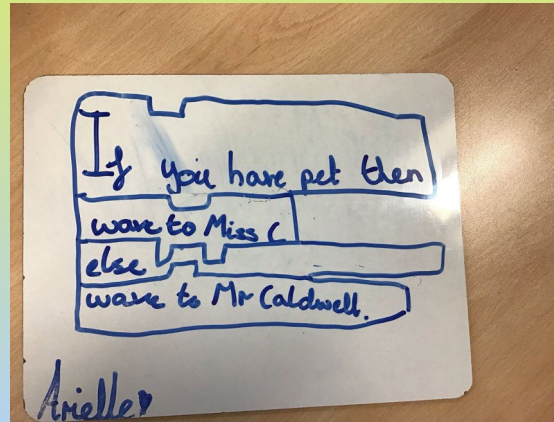 If you have pet then
wave to Miss C
else
wave to Mr Caldwell.
Arielle♥